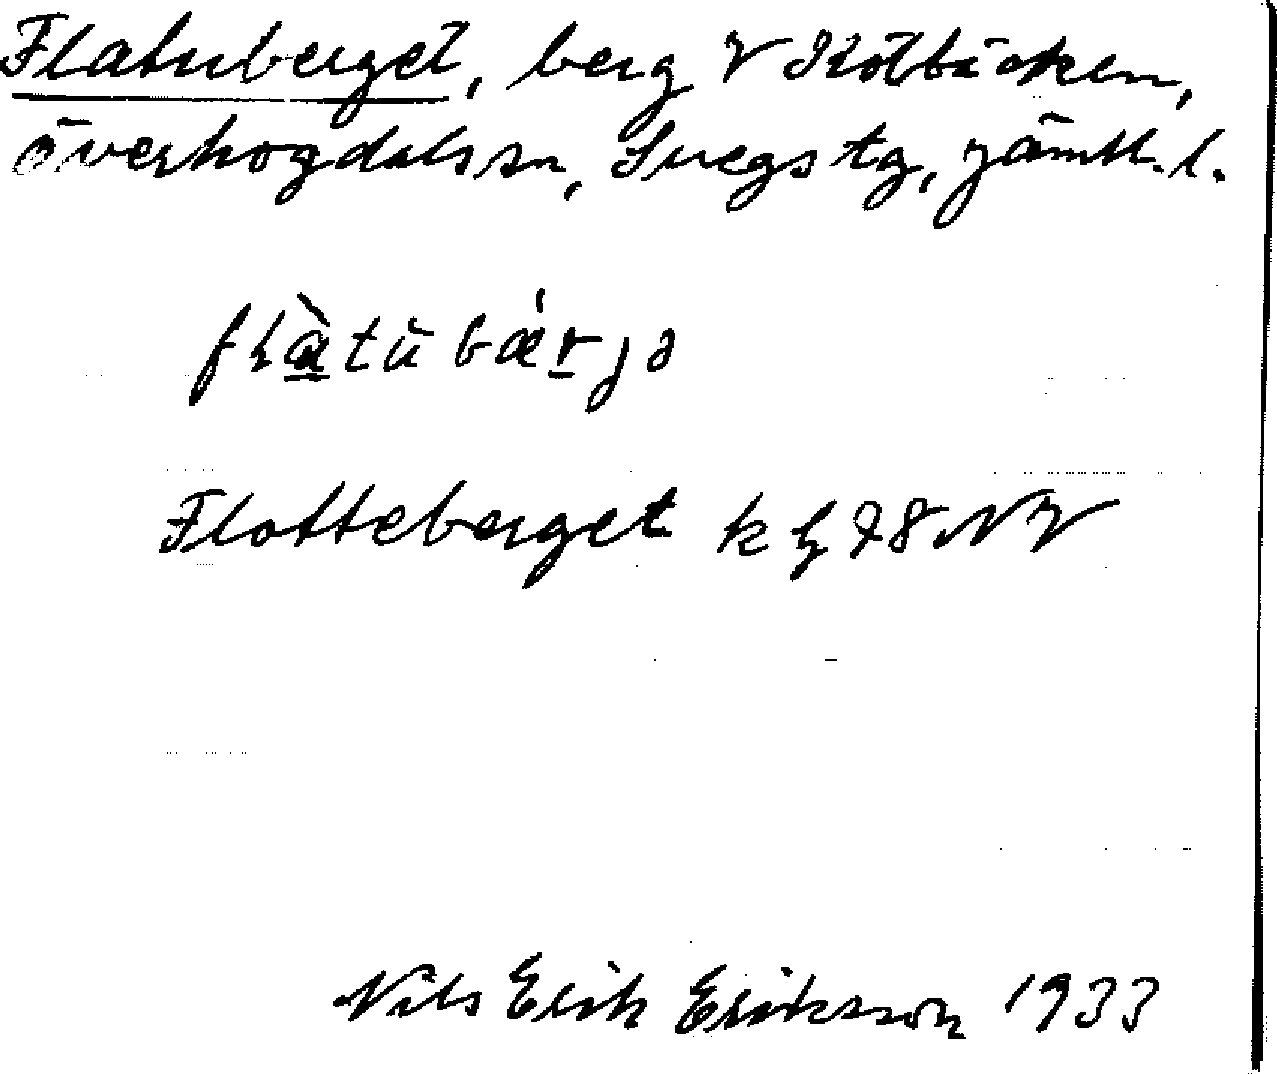 Flatuberget, berg V Kölbäcken,
överhogdals sn, Svegs tg, jämtl. l.
flàtùbǽrjə
Flotteberget k h 98 NV
Nils Erik Eriksson 1933